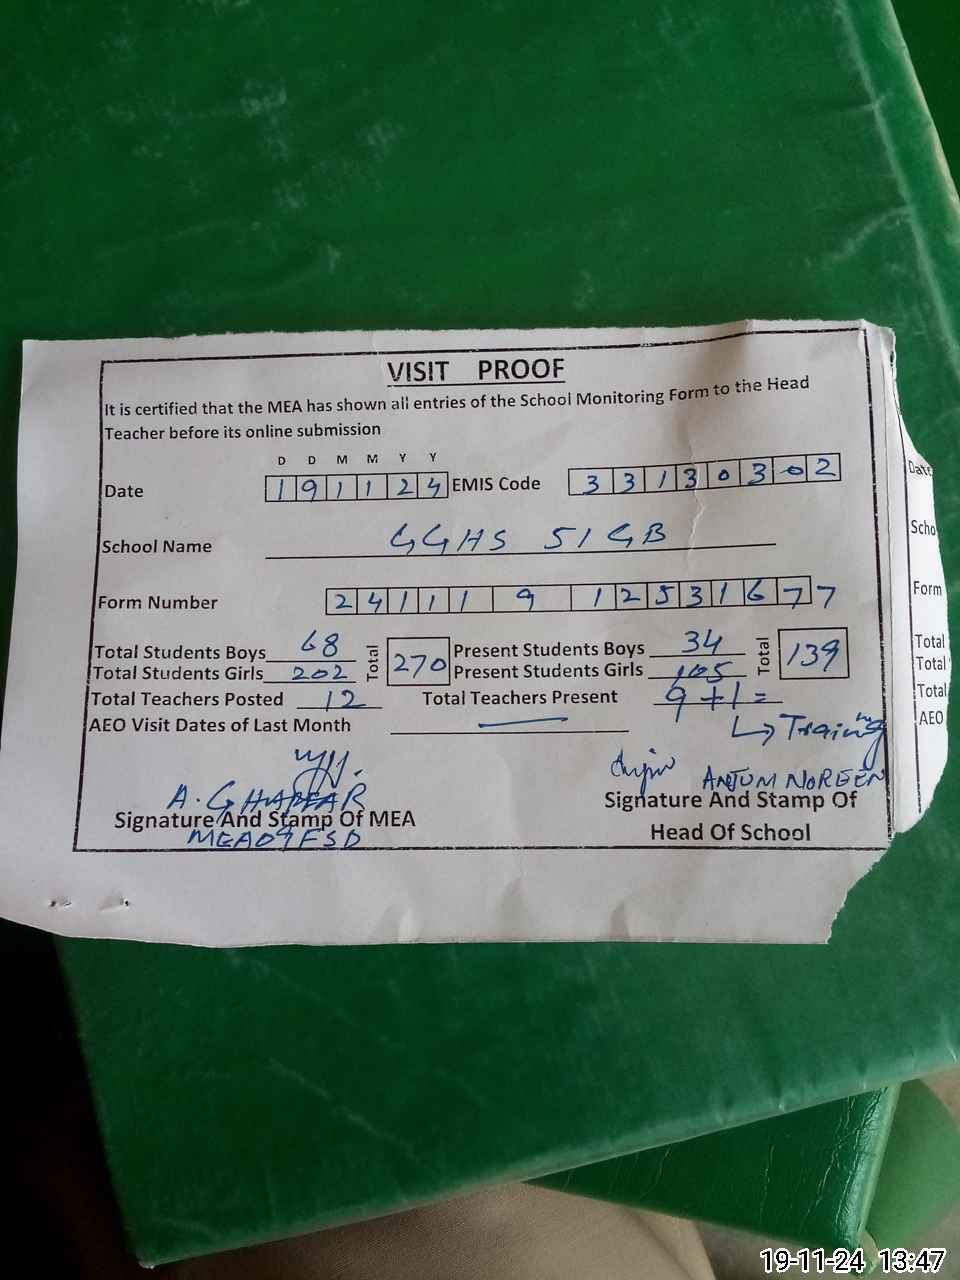 VISIT PROOF
It is certified that the MEA has shown all entries of the School Monitoring Form to the Head
Teacher before its online submission
D D M M Y Y
Date 191124 EMIS Code 33130302
School Name GGHS 51 GB
Form Number 24111912531677
Total Students Boys 68 Total 270 Present Students Boys 34 Total 139
Total Students Girls 202 Present Students Girls 105
Total Teachers Posted 12 Total Teachers Present 9+1=
AEO Visit Dates of Last Month — ↳ Training
A. GHAFFAR ANJUM NOREEN
Signature And Stamp Of MEA Signature And Stamp Of
MEA09FSD Head Of School
Date
Scho
Form
Total
Total
Total
AEO
19-11-24 13:47